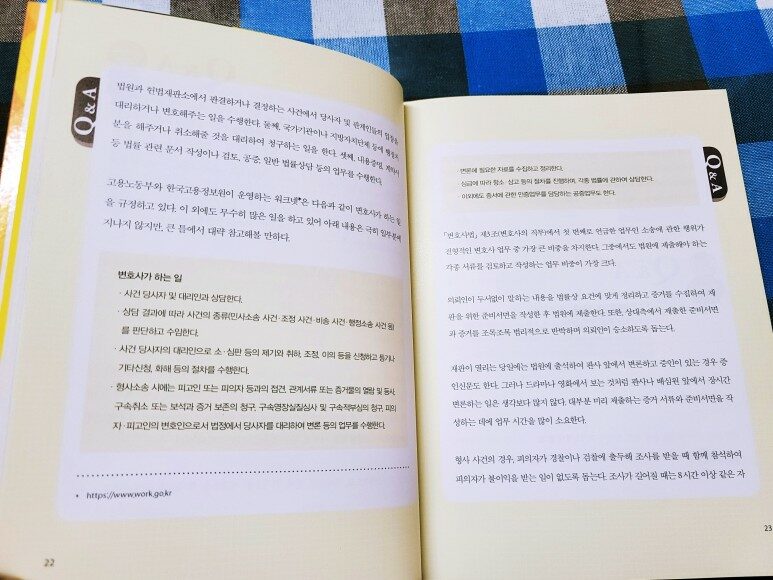 Q & A
법원과 헌법재판소에서 판결하거나 결정하는 사건에서 당사자 및 관계인들의 입장을
대리하거나 변호해주는 일을 수행한다. 둘째, 국가기관이나 지방자치단체 등에 행정처
분을 해주거나 취소해줄 것을 대리하여 청구하는 일을 한다. 셋째, 내용증명, 계약서
등 법률 관련 문서 작성이나 검토, 공증, 일반 법률상담 등의 업무를 수행한다.
고용노동부와 한국고용정보원이 운영하는 워크넷*은 다음과 같이 변호사가 하는 일
을 규정하고 있다. 이 외에도 무수히 많은 일을 하고 있어 아래 내용은 극히 일부분에
지나지 않지만, 큰 틀에서 대략 참고해볼 만하다.
변호사가 하는 일
· 사건 당사자 및 대리인과 상담한다.
· 상담 결과에 따라 사건의 종류(민사소송 사건·조정 사건·비송 사건·행정소송 사건 등)
를 판단하고 수임한다.
· 사건 당사자의 대리인으로 소·심판 등의 제기와 취하, 조정, 이의 등을 신청하고 등기나
기타신청, 화해 등의 절차를 수행한다.
· 형사소송 시에는 피고인 또는 피의자 등과의 접견, 관계서류 또는 증거물의 열람 및 등사,
구속취소 또는 보석과 증거 보존의 청구, 구속영장실질심사 및 구속적부심의 청구, 피의
자·피고인의 변호인으로서 법정에서 당사자를 대리하여 변론 등의 업무를 수행한다.
* https://www.work.go.kr
22
Q & A
변론에 필요한 자료를 수집하고 정리한다.
심급에 따라 항소·상고 등의 절차를 진행하며, 각종 법률에 관하여 상담한다.
이외에도 증서에 관한 인증업무를 담당하는 공증업무도 한다.
「변호사법」 제3조(변호사의 직무)에서 첫 번째로 언급한 업무인 소송에 관한 행위가
전형적인 변호사 업무 중 가장 큰 비중을 차지한다. 그중에서도 법원에 제출해야 하는
각종 서류를 검토하고 작성하는 업무 비중이 가장 크다.
의뢰인이 두서없이 말하는 내용을 법률상 요건에 맞게 정리하고 증거를 수집하여 재
판을 위한 준비서면을 작성한 후 법원에 제출한다. 또한, 상대측에서 제출한 준비서면
과 증거를 조목조목 법리적으로 반박하며 의뢰인이 승소하도록 돕는다.
재판이 열리는 당일에는 법원에 출석하여 판사 앞에서 변론하고 증인이 있는 경우 증
인신문도 한다. 그러나 드라마나 영화에서 보는 것처럼 판사나 배심원 앞에서 장시간
변론하는 일은 생각보다 많지 않다. 대부분 미리 제출하는 증거 서류와 준비서면을 작
성하는 데에 업무 시간을 많이 소요한다.
형사 사건의 경우, 피의자가 경찰이나 검찰에 출두해 조사를 받을 때 함께 참석하여
피의자가 불이익을 받는 일이 없도록 돕는다. 조사가 길어질 때는 8시간 이상 같은 자
23